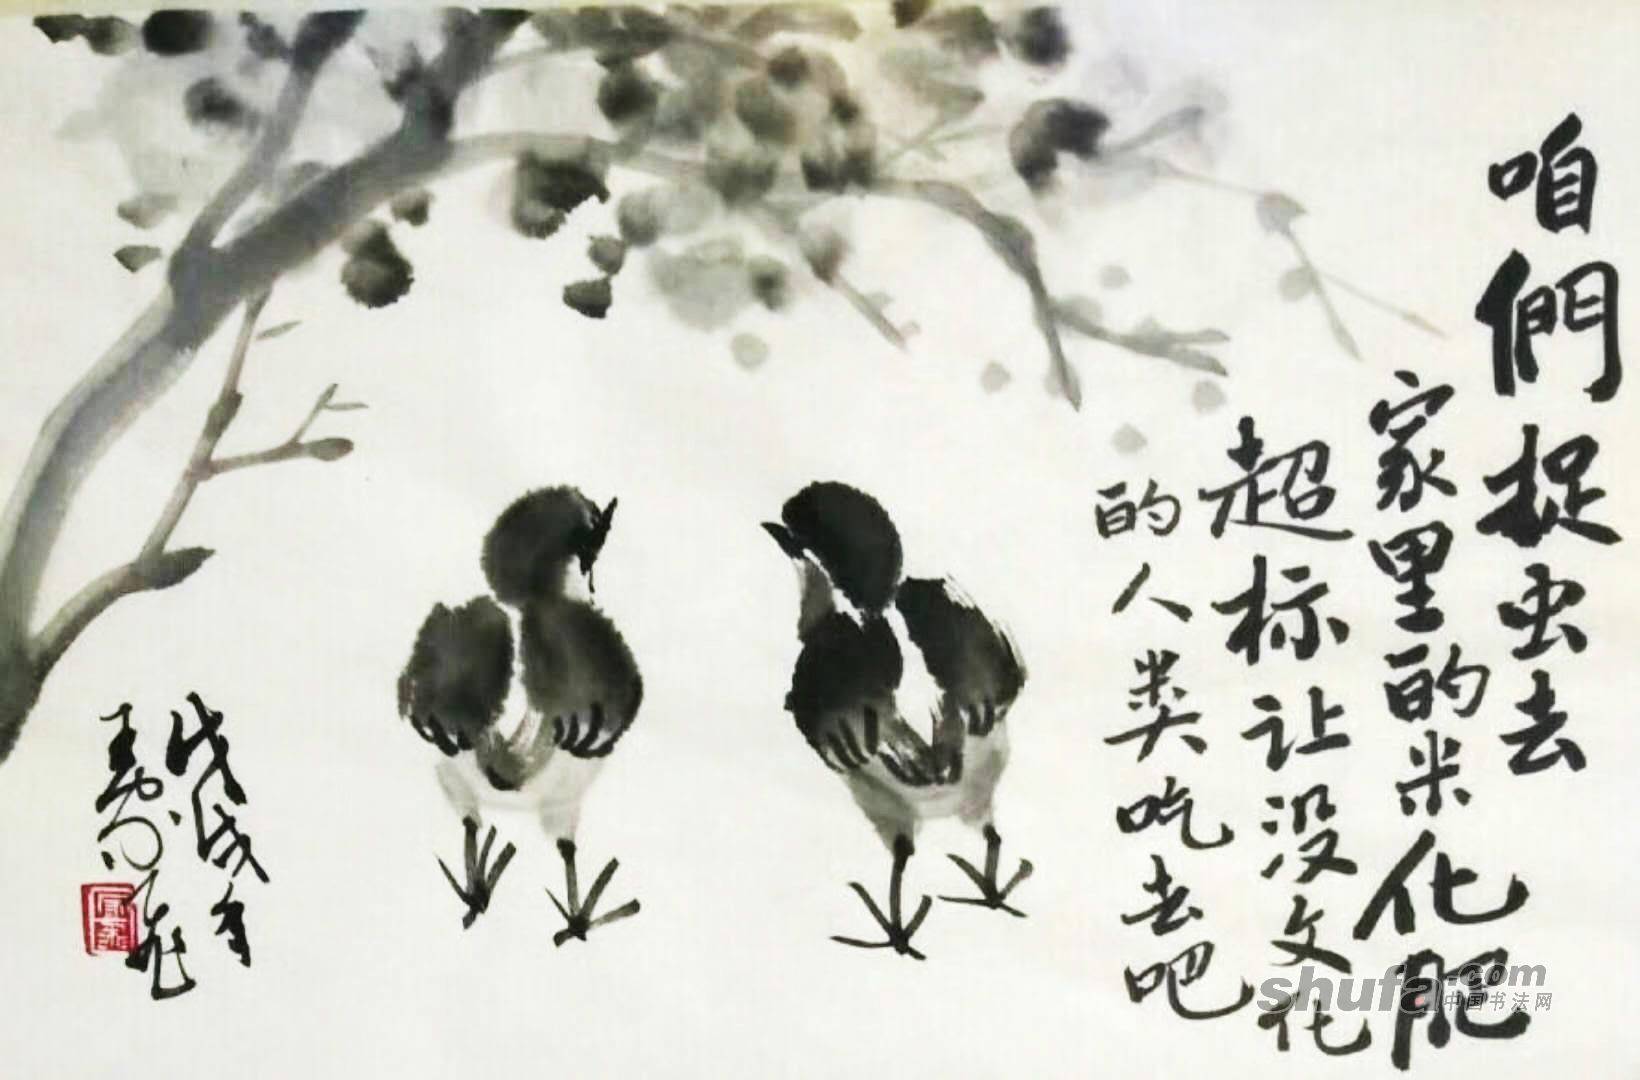 咱們捉虫去
家里的米化肥
超标让没文化
的人类吃去吧
戊戌年
shufa.com
中国书法网